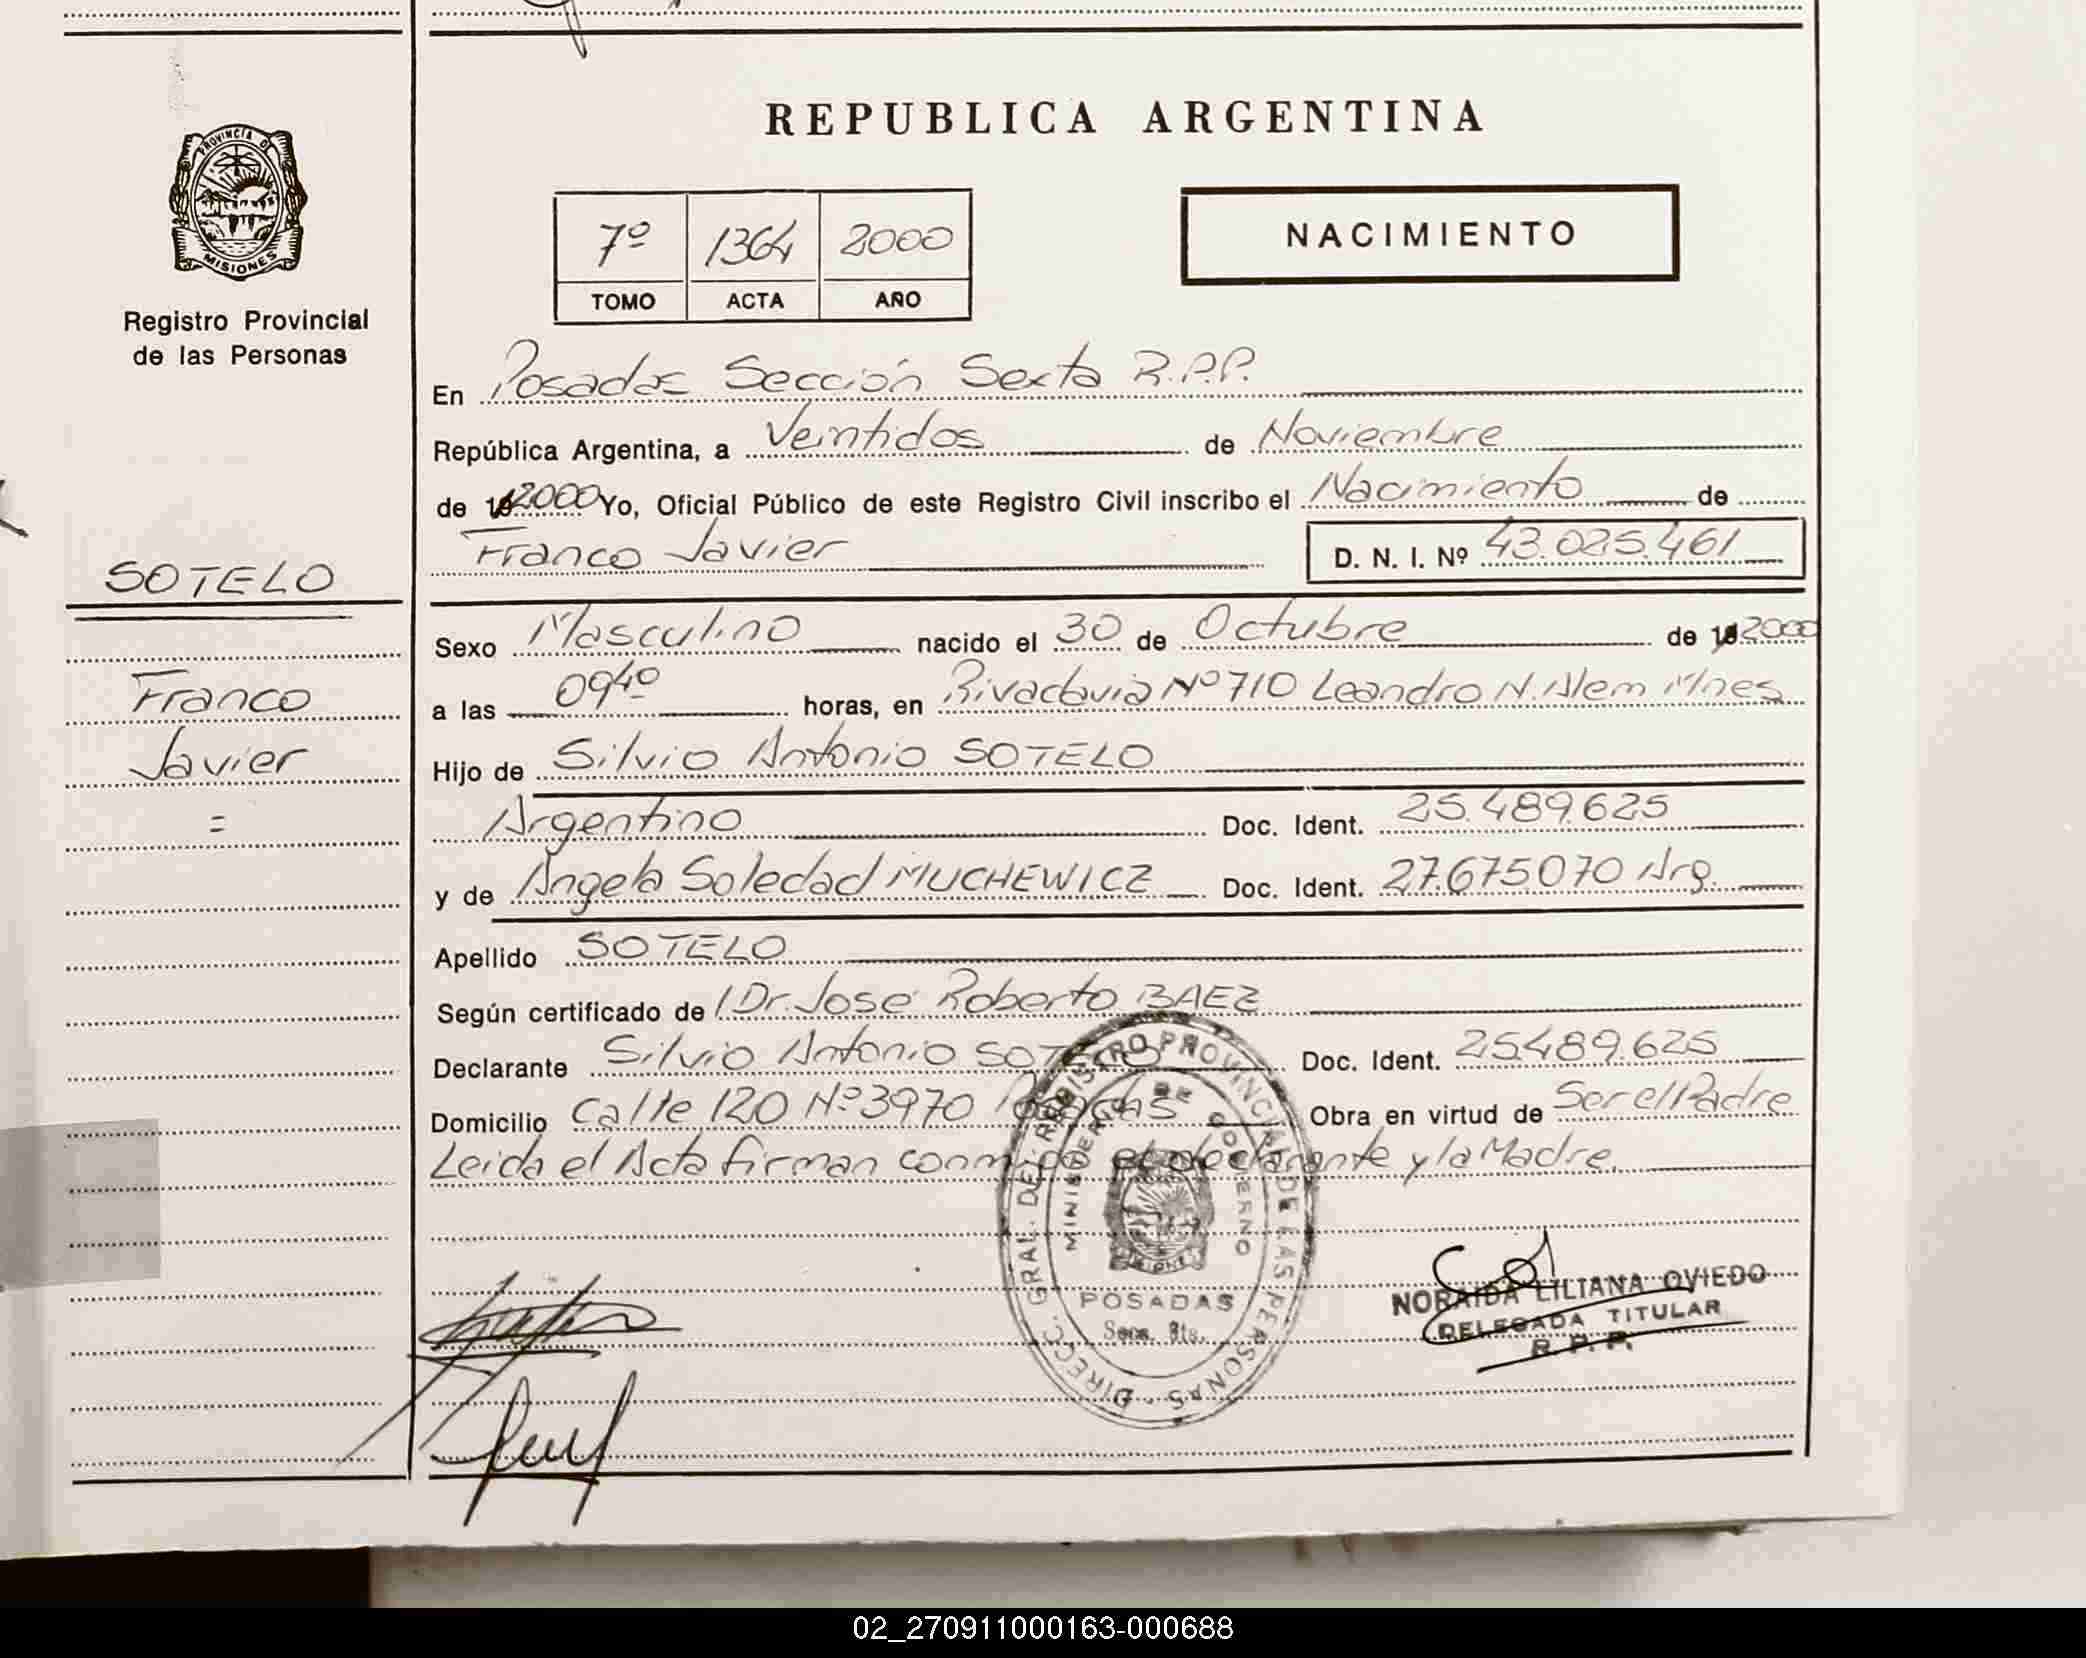 REPUBLICA ARGENTINA
PROVINCIA D
MISIONES
Registro Provincial
de las Personas
7º 1364 2000
TOMO ACTA AÑO
NACIMIENTO
En Posadas Sección Sexta R.P.P.
República Argentina, a Veintidos de Noviembre
de 2000 Yo, Oficial Público de este Registro Civil inscribo el Nacimiento de
Franco Javier D. N. I. Nº 43.025.461
SOTELO
Franco
Javier
=
Sexo Masculino nacido el 30 de Octubre de 2000
a las 09⁴⁰ horas, en Rivadavia Nº 710 Leandro N. Alem Mnes
Hijo de Silvio Antonio SOTELO
Argentino Doc. Ident. 25.489.625
y de Angela Soledad MUCHEWICZ Doc. Ident. 27.675070 Arg.
Apellido SOTELO
Según certificado de Dr. José Roberto BAEZ
Declarante Silvio Antonio SOTELO Doc. Ident. 25.489.625
Domicilio Calle 120 Nº 3970 Posadas Obra en virtud de Ser el Padre
Leida el Acta firman conmigo el declarante y la Madre.
DIREC. GRAL. DEL REGISTRO PROVINCIAL DE LAS PERSONAS
MINISTERIO DE GOBIERNO
MISIONES
POSADAS
Secc. 6ta.
NORAIDA LILIANA OVIEDO
DELEGADA TITULAR
R. P. P.
02_270911000163-000688